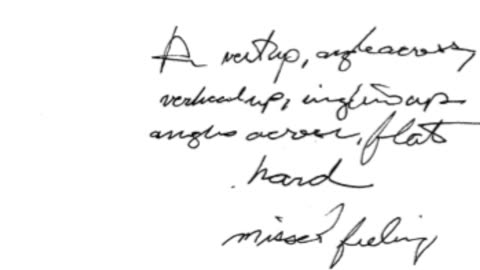 A vert up, angle across,
vertical up,
angle across, flat
hard
missed feeling